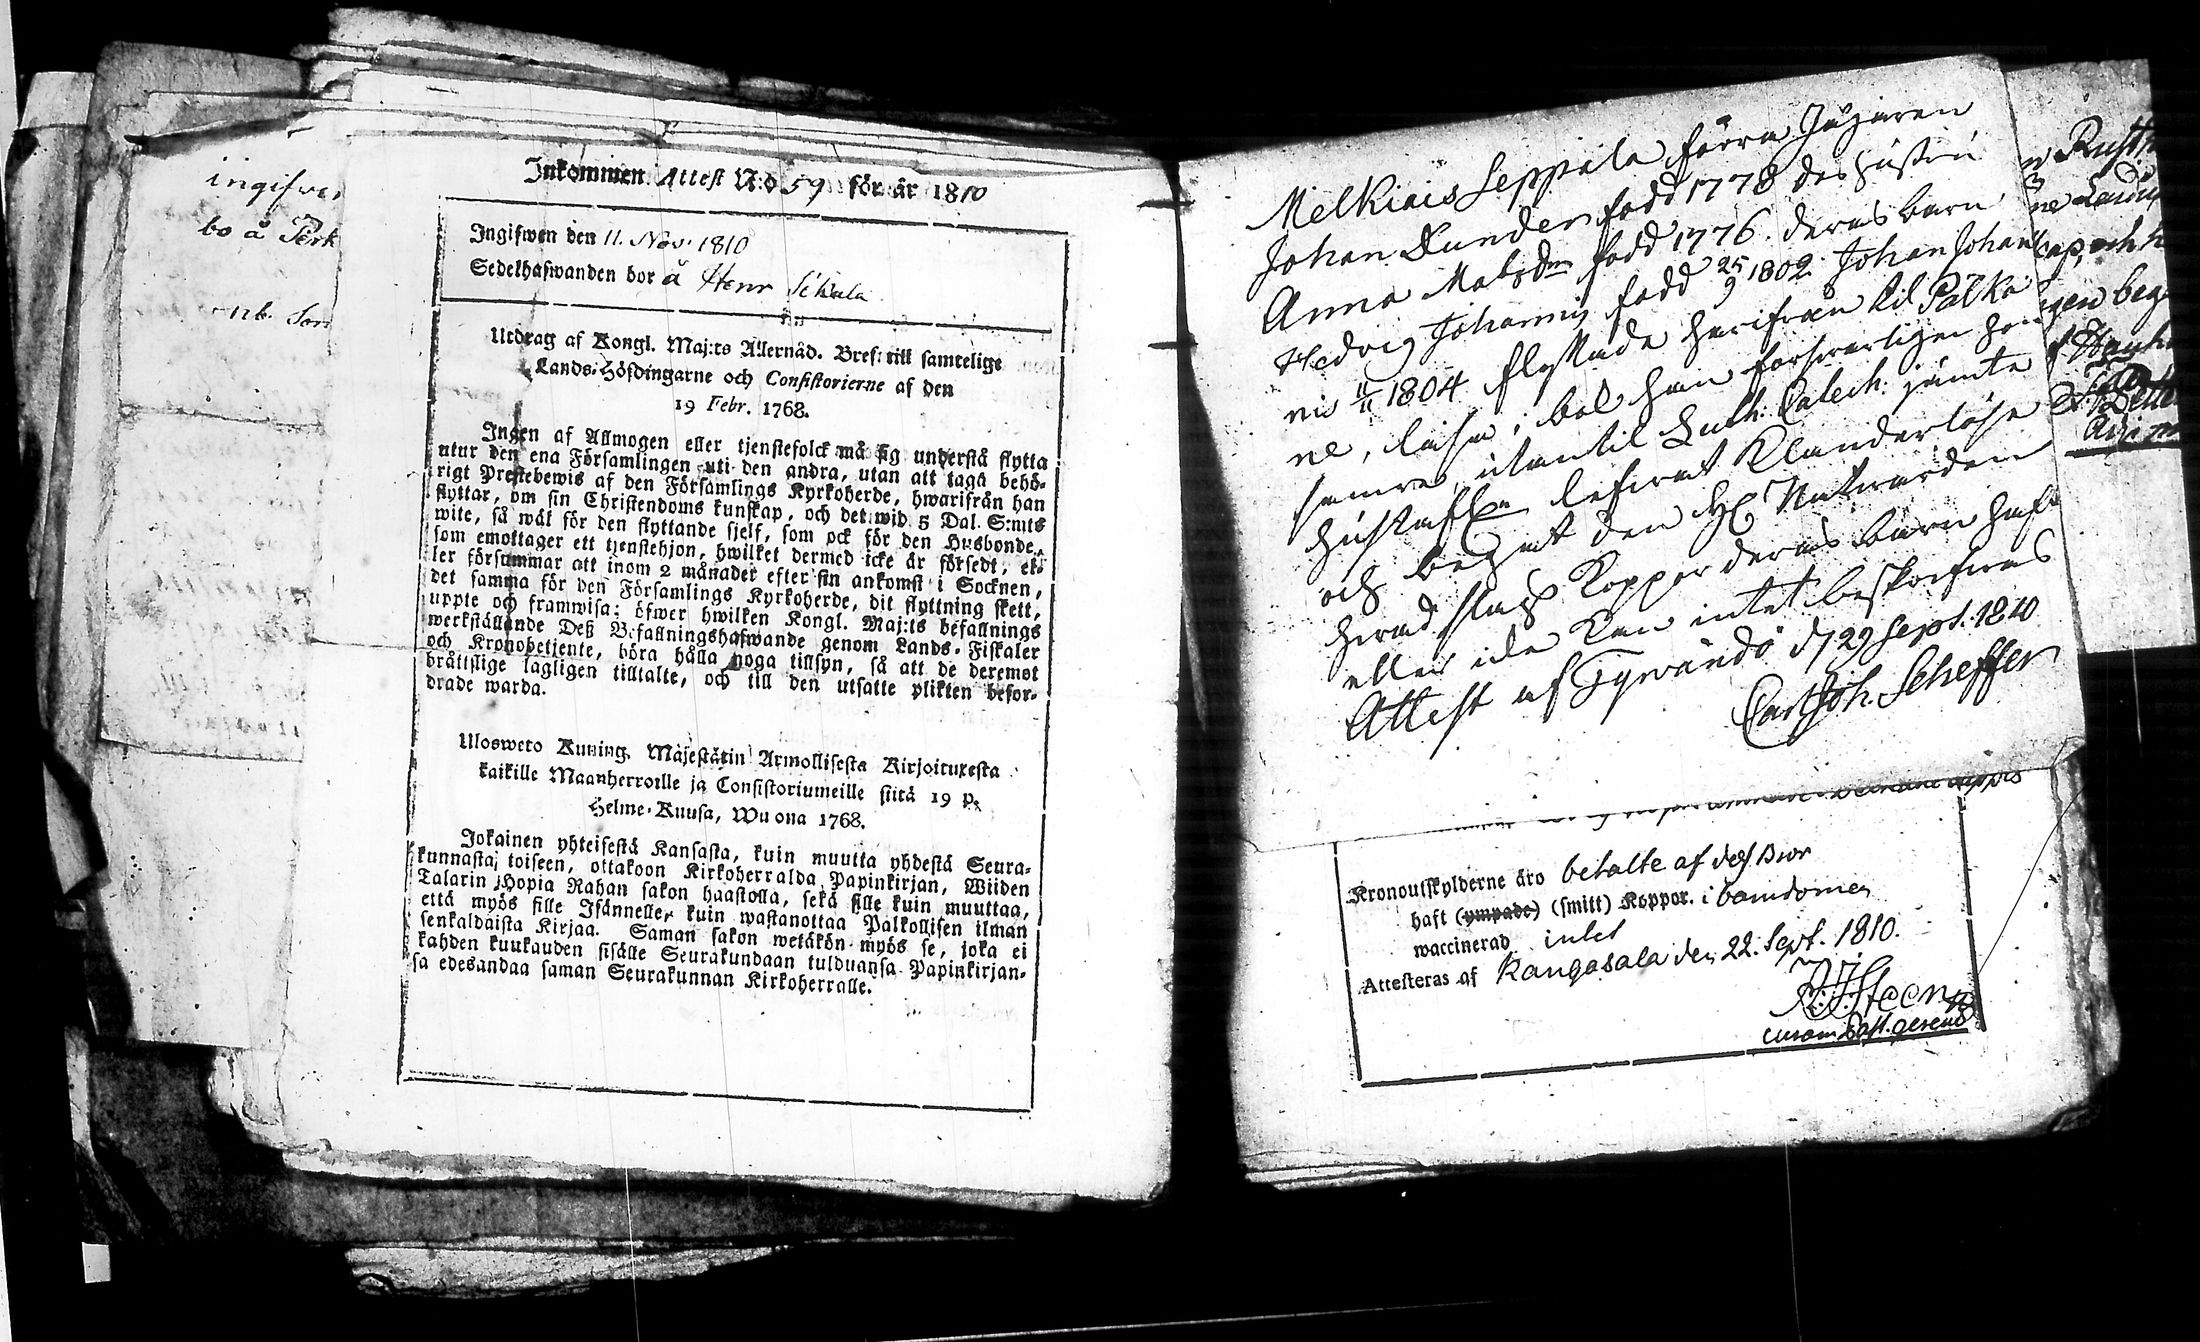 ingifwe
bo å Perk
Inkommen Attest N:o 59 för år 1810
Ingifwen den 11. Nov: 1810
Sedelhafwanden bor å Henr Sikala
Utdrag af Kongl. Maj:ts Allernåd. Bref till samtelige
Lands-Höfdingarne och Consistorierne af den
19 Febr. 1768.
Ingen af Allmogen eller tjenstefolck må sig understå flytta
utur den ena Församlingen uti den andra, utan att taga behö-
rigt Prestebewis af den Församlings Kyrkoherde, hwarifrån han
flyttar, om sin Christendoms kunskap, och det wid 5 Dal. S:mts
wite, så wäl för den flyttande sjelf, som ock för den Husbonde,
som emottager ett tjenstehjon, hwilket dermed icke är försedt, el-
ler försummar att inom 2 månader efter sin ankomst i Socknen,
det samma för den Församlings Kyrkoherde, dit flyttning skett,
uppte och framwisa: öfwer hwilken Kongl. Maj:ts befallnings
werkställande Deß Befallningshafwande genom Lands-Fiskaler
och Kronobetjente, böra hålla noga tillsyn, så att de deremot
bråttslige lagligen tilltalte, och till den utsatte plikten befor-
drade warda.
Ulosweto Kuning. Majestätin Armollisesta Kirjoituxesta
kaikille Maanherroille ja Consistoriumeille siitä 19 p.
Helme-Kuusa, Wuona 1768.
Jokainen yhteisestä Kansasta, kuin muutta yhdestä Seura-
kunnasta toiseen, ottakoon Kirkoherralda Papinkirjan, Wiiden
Talarin Hopia Rahan sakon haastolla, sekä sille kuin muuttaa,
että myös sille Isännelle, kuin wastanottaa Palkollisen ilman
senkaldaista Kirjaa. Saman sakon wetäkön myös se, joka ei
kahden kuukauden sisälle Seurakundaan tulduansa Papinkirjan-
sa edesandaa saman Seurakunnan Kirkoherralle.
Melkiais Seppälä förra Jägaren
Johan Lunder född 1778 des hustru
Anna Matsdr född 1776. deras barn
Hedvig Johanna född 25/9 1802. Johan Johan
ni 11/11 1804 flyttade härifrån til Palka
ne, läser i bok han forsvarligen hon
samre, utantil Luth: Catech: jämte
hustaflan lefwat Klanderlöse
och begåt den H. Nattvarden
hwad slags Koppor deras barn haft
eller icke kan intet beskrifwas
Attest af Tyrwändö d 29 Sept. 1810
Carl Joh. Scheffer
Kronoutskylderne äro betalte af des Bror
haft (ympade) (smitt) Koppor. i barndomen
waccinerad intet
Attesteras af Kangasala den 22. Sept. 1810.
Steen
curam Past. gerens